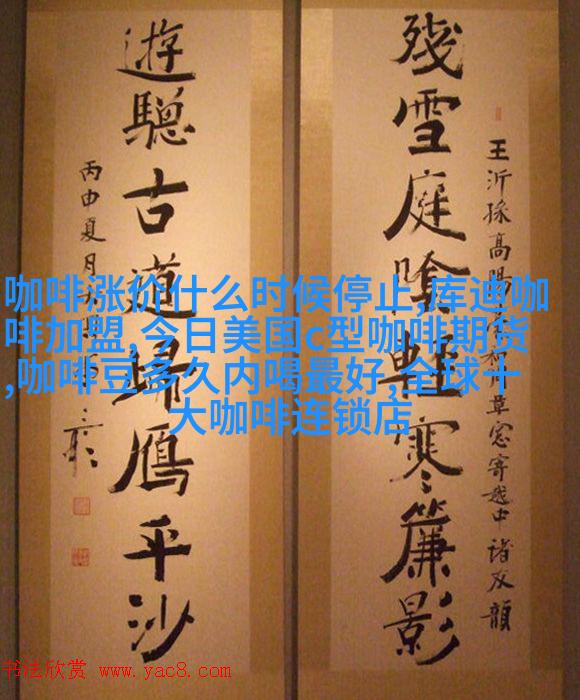 殘雪庭陰輕寒簾影
王沂孫高陽臺和周草窓寄越中諸友韻
遊驄古道歸鴈平沙
丙申夏月
咖啡涨价什么时候停止,库迪咖
啡加盟,今日美国c型咖啡期货
,咖啡豆多久内喝最好,全球十
大咖啡连锁店
书法欣赏 www.yac8.com